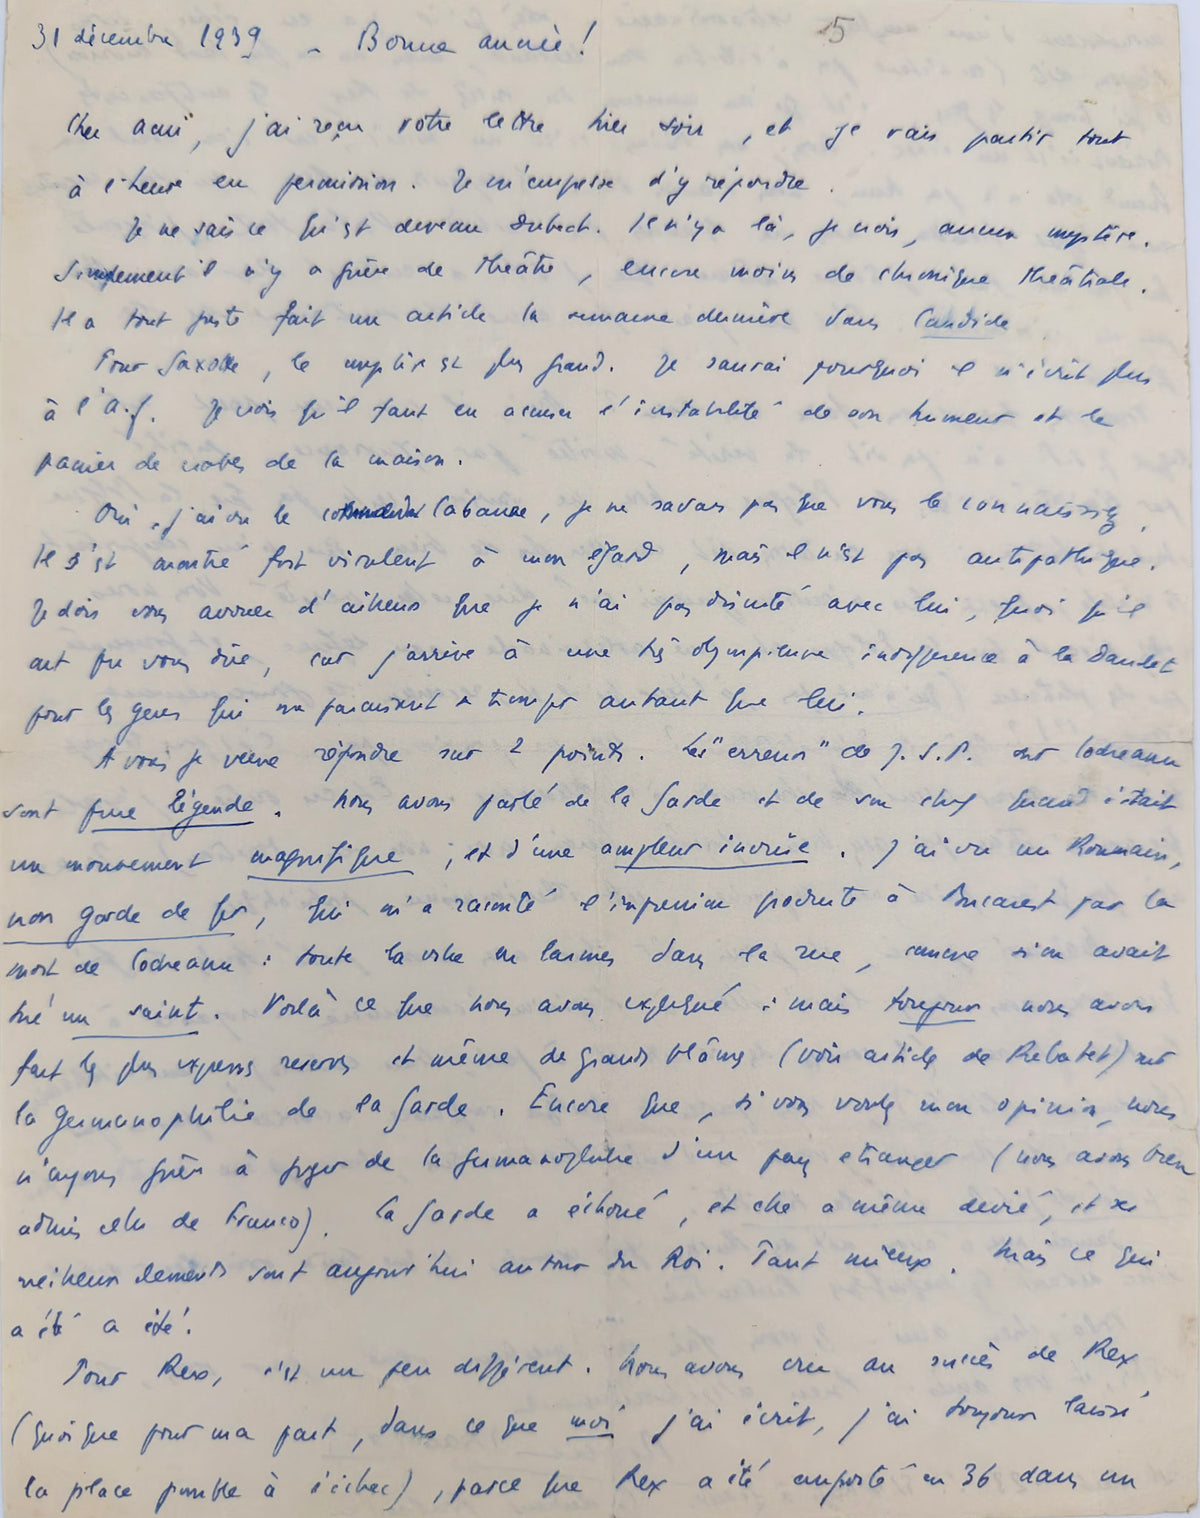 31 décembre 1939 - Bonne année !
5
Cher ami, j'ai reçu votre lettre hier soir, et je vais partir tout
à l'heure en permission. Je m'empresse d'y répondre.
Je ne sais ce qu'est devenu Dubech. Il n'y a là, je crois, aucun mystère.
Simplement il n'y a guère de théâtre, encore moins de chronique théâtrale.
Il a tout juste fait un article la semaine dernière dans Candide
Pour Saxotte, le mystère est plus grand. Je saurai pourquoi il n'écrit plus
à l'A.f. Je crois qu'il faut en accuser l'instabilité de son humeur et le
panier de crabes de la maison.
Oui, j'ai vu le Cabanee, je ne savais pas que vous le connaissiez.
Il s'est montré fort virulent à mon égard, mais il n'est pas antipathique.
Je dois vous avouer d'ailleurs que je n'ai pas discuté avec lui, quoi qu'il
ait pu vous dire, car j'arrive à une très olympienne indifférence à la Daudet
pour les gens qui me paraissent se tromper autant que lui.
A vous je veux répondre sur 2 points. Les "erreurs" de J.S.P. sur Codreanu
sont pure légende. Nous avons parlé de la Garde et de son chef quand c'était
un mouvement magnifique, et d'une ampleur inouïe. J'ai vu un Roumain,
non garde de fer, qui m'a raconté l'impression produite à Bucarest par la
mort de Codreanu : toute la ville en larmes dans la rue, comme si on avait
tué un saint. Voilà ce que nous avons expliqué : mais toujours nous avons
fait les plus expresses réserves et même de grands blâmes (voir article de Rebatet) sur
la germanophilie de la Garde. Encore que, si vous voulez mon opinion, nous
n'ayons guère à juger de la germanophilie d'un pays étranger (nous avons bien
admis celle de Franco). La Garde a échoué, et elle a même dévié, et ses
meilleurs éléments sont aujourd'hui autour du Roi. Tant mieux. Mais ce qui
a été a été.
Pour Rex, c'est un peu différent. Nous avons cru au succès de Rex
(quoique pour ma part, dans ce que moi j'ai écrit, j'ai toujours laissé
la place possible à l'échec), parce que Rex a été emporté en 36 dans un